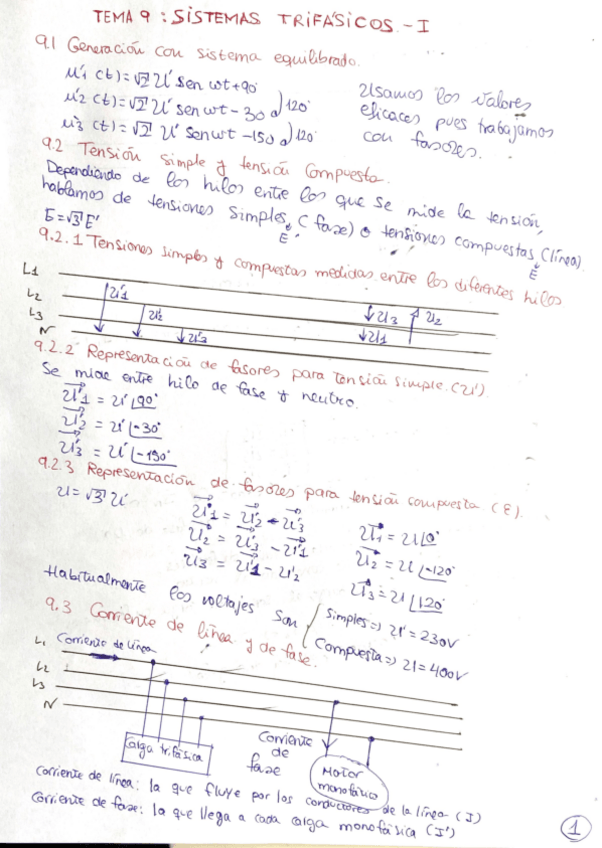 TEMA 9 : SISTEMAS TRIFÁSICOS.-I
9.1 Generación con sistema equilibrado.
u'1 (t)=√2 U' sen wt+90°
u'2 (t)=√2 U' sen wt-30° 120°
u'3 (t)=√2 U' sen wt-150 120°
Usamos los valores
eficaces pues trabajamos
con fasores.
9.2 Tensión simple y tensión compuesta.
Dependiendo de los hilos entre los que se mide la tensión,
hablamos de tensiones simples (fase) o tensiones compuestas (línea)
E' E
E=√3 E'
9.2.1 Tensiones simples y compuestas medidas entre los diferentes hilos
L1
L2
L3
N
U'1
U'2
U'3
U3
U1
U2
9.2.2 Representación de fasores para tensión simple (U').
Se mide entre hilo de fase y neutro.
U'1 = U' 90°
U'2 = U' -30°
U'3 = U' -150°
9.2.3 Representación de fasores para tensión compuesta (E).
U=√3 U'
U1 = U'2 - U'3
U2 = U'3 - U'1
U3 = U'1 - U'2
U1 = U 0°
U2 = U -120°
U3 = U 120°
Habitualmente los voltajes son
Simples => U' = 230V
Compuesta => U = 400V
9.3 Corriente de línea y de fase.
L1 Corriente de línea
L2
L3
N
Carga trifásica
Corriente
de
fase
Motor
monofásico
Corriente de línea: la que fluye por los conductores de la línea (I)
Corriente de fase: la que llega a cada carga monofásica (I')
1